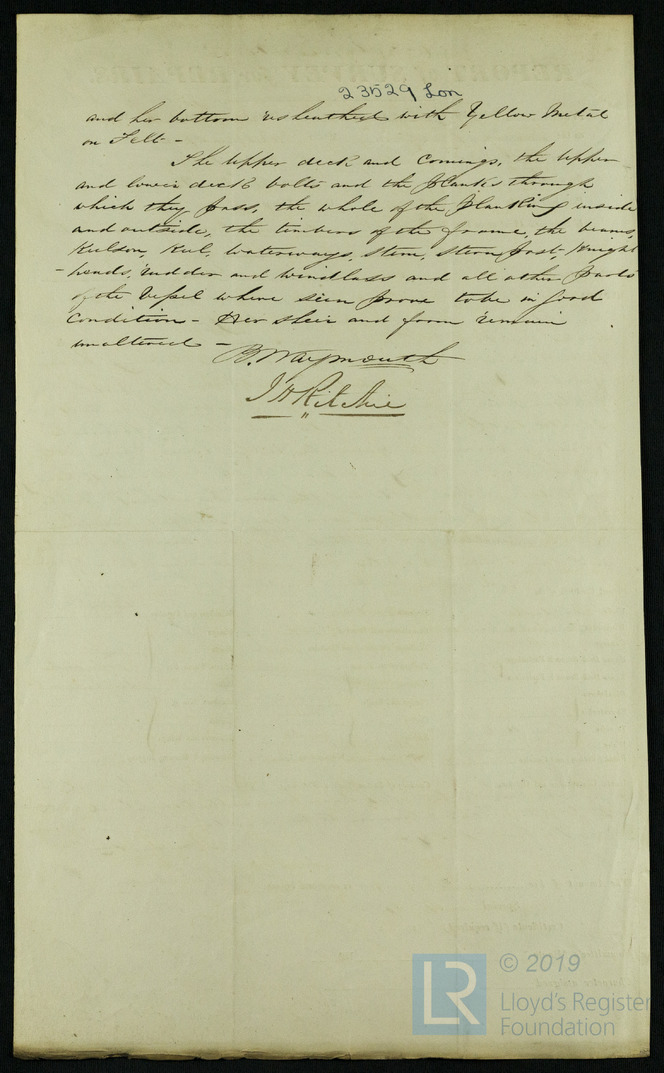 23529 Lon
and her bottom resheathed with Yellow Metal
on Felt -
The Upper deck and Comings, the Upper
and lower deck bolts and the planks through
which they pass, the whole of the planking inside
and outside, the timbers of the frame, the beams,
Keelson, Keel, Waterways, Stem, Stern post, Knight
-heads, rudder and windlass and all other parts
of the Vessel where seen prove to be in good
Condition - Her sheer and form remain
unaltered -
B. Waymouth
J H Ritchie
LR
© 2019
Lloyd's Register
Foundation